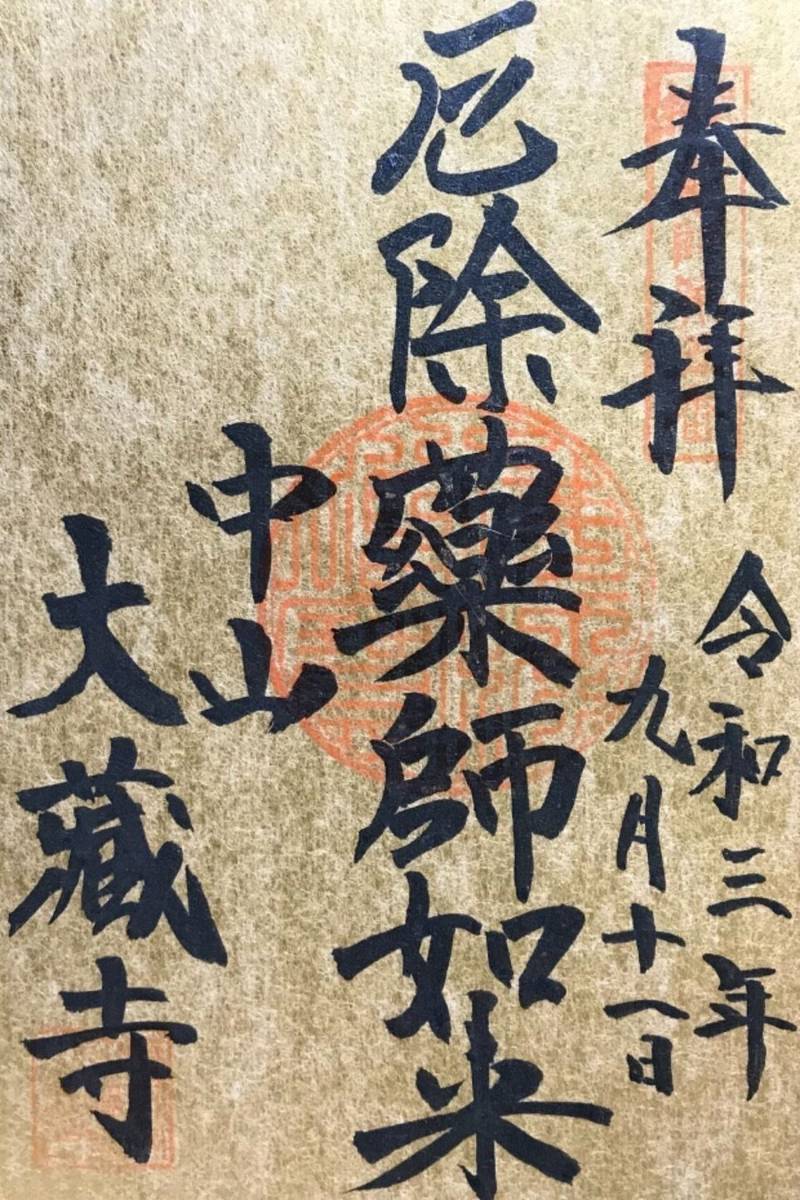 奉拝
令和三年
九月十一日
厄除藥師如来
中山
大藏寺